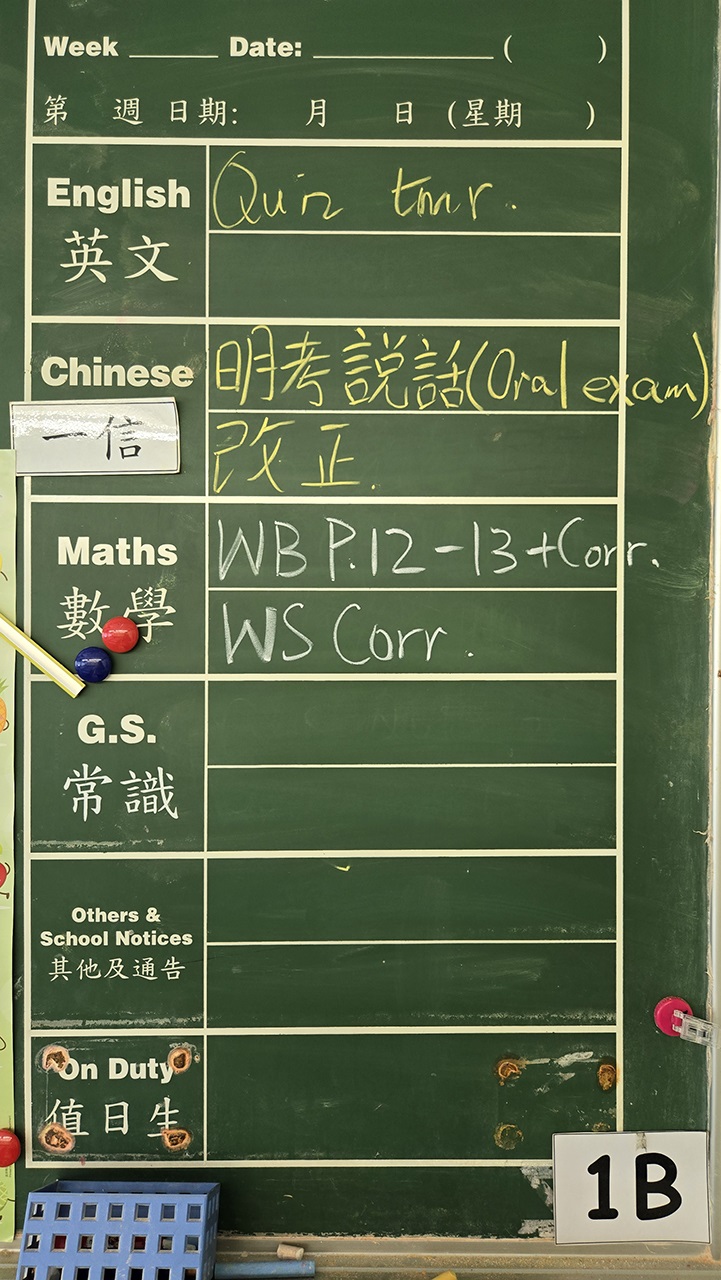 Week _____ Date: _______________ (      )
第 週 日期: 月 日 (星期 )
English
英文
Quiz tmr.
Chinese
一信
明考説話(Oral exam)
改正.
Maths
數學
WB P.12-13+Corr.
WS Corr.
G.S.
常識
Others &
School Notices
其他及通告
On Duty
值日生
1B